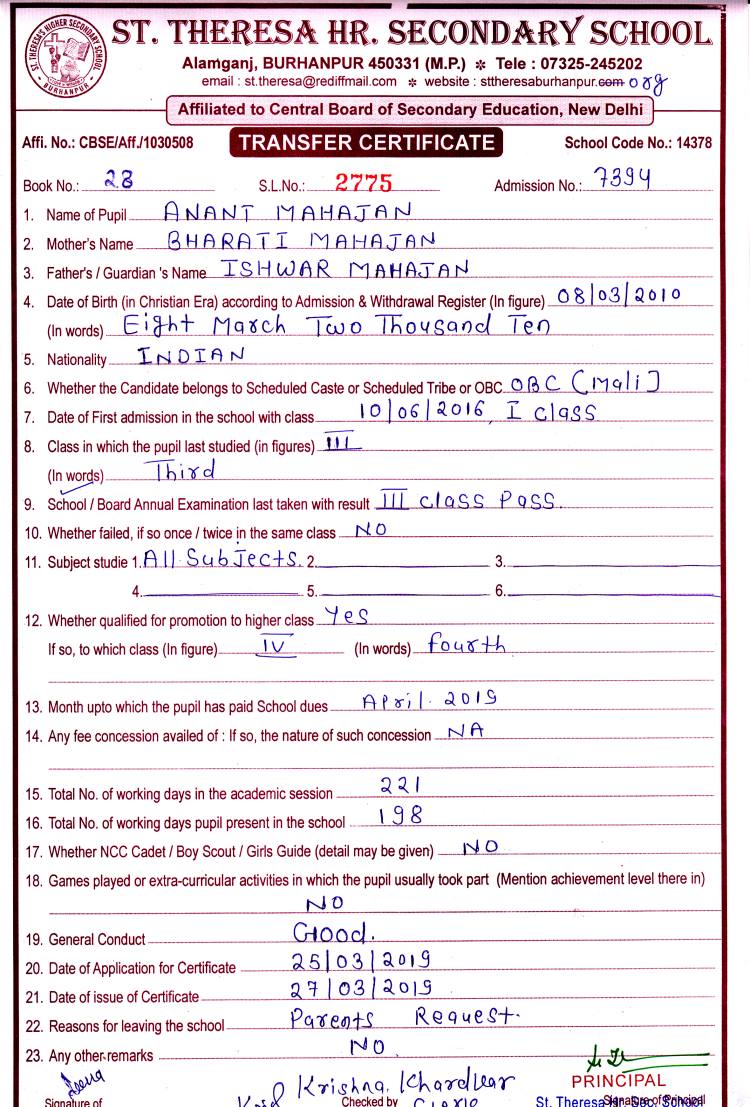 ST. THERESA HR. SECONDARY SCHOOL
Alamganj, BURHANPUR 450331 (M.P.) * Tele : 07325-245202
email : st.theresa@rediffmail.com * website : sttheresaburhanpur.com org
Affiliated to Central Board of Secondary Education, New Delhi
Affi. No.: CBSE/Aff./1030508 TRANSFER CERTIFICATE School Code No.: 14378
Book No.: 28 S.L.No.: 2775 Admission No.: 7394
1. Name of Pupil ANANT MAHAJAN
2. Mother's Name BHARATI MAHAJAN
3. Father's / Guardian 's Name ISHWAR MAHAJAN
4. Date of Birth (in Christian Era) according to Admission & Withdrawal Register (In figure) 08/03/2010
(In words) Eight March Two Thousand Ten
5. Nationality INDIAN
6. Whether the Candidate belongs to Scheduled Caste or Scheduled Tribe or OBC OBC (Mali]
7. Date of First admission in the school with class 10/06/2016, I class
8. Class in which the pupil last studied (in figures) III
(In words) Third
9. School / Board Annual Examination last taken with result III class Pass.
10. Whether failed, if so once / twice in the same class NO
11. Subject studie 1. All Subjects. 2. 3.
4. 5. 6.
12. Whether qualified for promotion to higher class Yes
If so, to which class (In figure) IV (In words) fourth
13. Month upto which the pupil has paid School dues April. 2019
14. Any fee concession availed of : If so, the nature of such concession NA
15. Total No. of working days in the academic session 221
16. Total No. of working days pupil present in the school 198
17. Whether NCC Cadet / Boy Scout / Girls Guide (detail may be given) NO
18. Games played or extra-curricular activities in which the pupil usually took part (Mention achievement level there in)
NO
19. General Conduct Good.
20. Date of Application for Certificate 25/03/2019
21. Date of issue of Certificate 27/03/2019
22. Reasons for leaving the school Parents Request.
23. Any other remarks NO
Krishna Khardkar PRINCIPAL
Signature of Checked by Clerk St. Theresa Hr. Sec. School
Signature of Principal